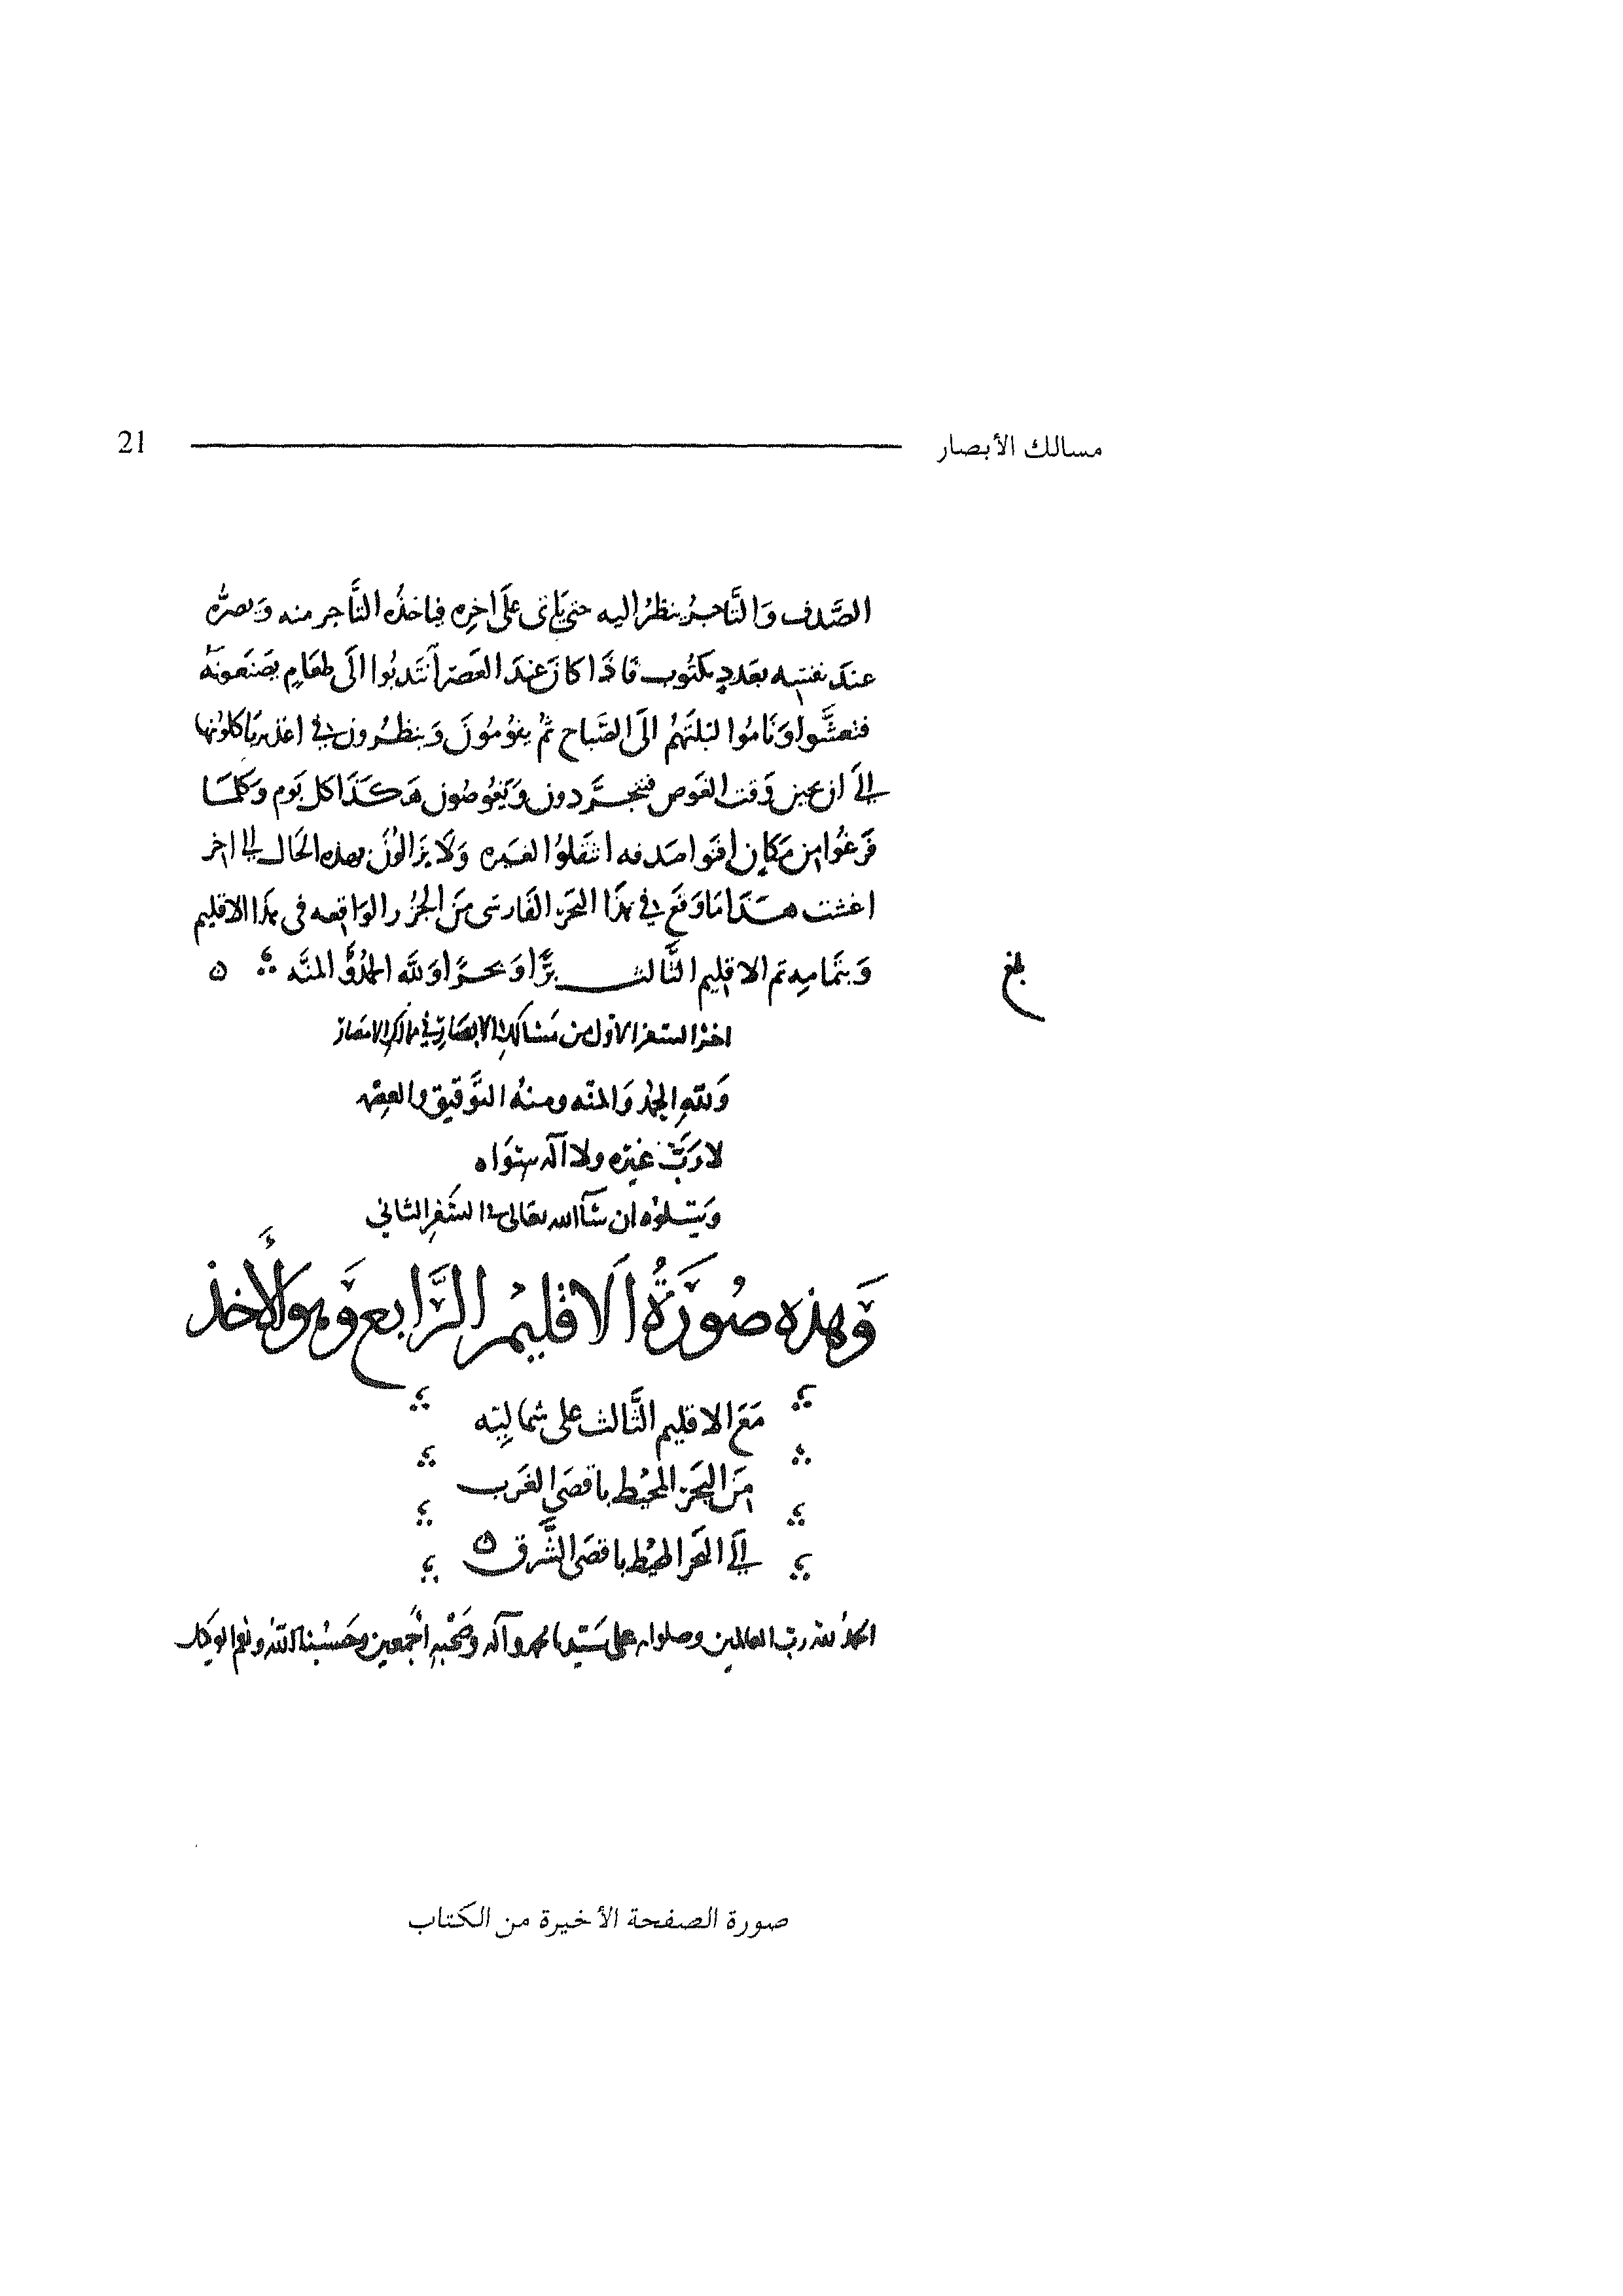 مسالك الأبصار 21
الصَّدف وَالتَّاجرُ ينظرُ اليه حتى يَاتى علَى اخِره فياخذُه التَّاجر منه وَيصرُّه
عندَ نفسِه بعَددٍ مكتُوب فاذَا كانَ عندَ العَصَر انتَدبُوا الَى طعَامٍ يصَنَعونَه
فتعشَّوا وَنَامُوا ليلتَهُم الَى الصَّباح ثمُ يقومُونَ وَينظرُون في اغذيَة ياكلونها
الَى ان يحين وَقت الغَوص فيتجرَّدون وَيَغُوصُون هَكذَا كل يَوم وَكلمَا
فَرغُوا مِن مَكانٍ افنَوا صَدفه انتقَلوُا لغيَره وَلَا يزَالوُنَ بهذه الحَال الى اخر
اغشت هَذَا مَا وَقَع في هذَا البَحَر الفَارسَى مَن الجُزُر الوَاقعه فى هذا الاقليم
وَبتمَامِه تم الاقليم الثَّالث برًّا وَبحرًا وَللّه الحمدُ وَالمنَّه
بلغ
اخرُ السفر الاوّل من مسَالك الابصَار في ممالك الامصَار
وَللّهِ الحمدُ وَالمنّه ومنهُ التوَّفيق والعصمه
لا رَبَّ غيَره ولا اله سوَاه
وَيتلوُه ان شَآ الله تعَالى في السَّفر الثانى
وَهذه صُورَةُ الَاقليم الرَّابع وَهوَ الأَخذ
مَعَ الاقليم الثَّالث على شماليّه
مَن البَحَر المحيُط باقصَى الغَرَب
الَى البَحَر المحيُط باقصَى الشَّرق
الحمدُ للّه ربّ العالمين وصلواته على سَيّدنا محمد وآله وصَحْبِه اَجمَعين وحَسْبُنا اللّهُ ونعم الوَكيل
صورة الصفحة الأخيرة من الكتاب